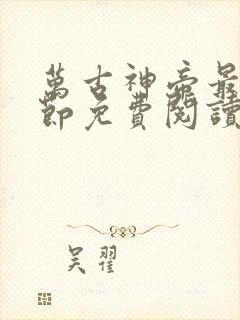 萬古神帝最
節免費閱讀
吴翟